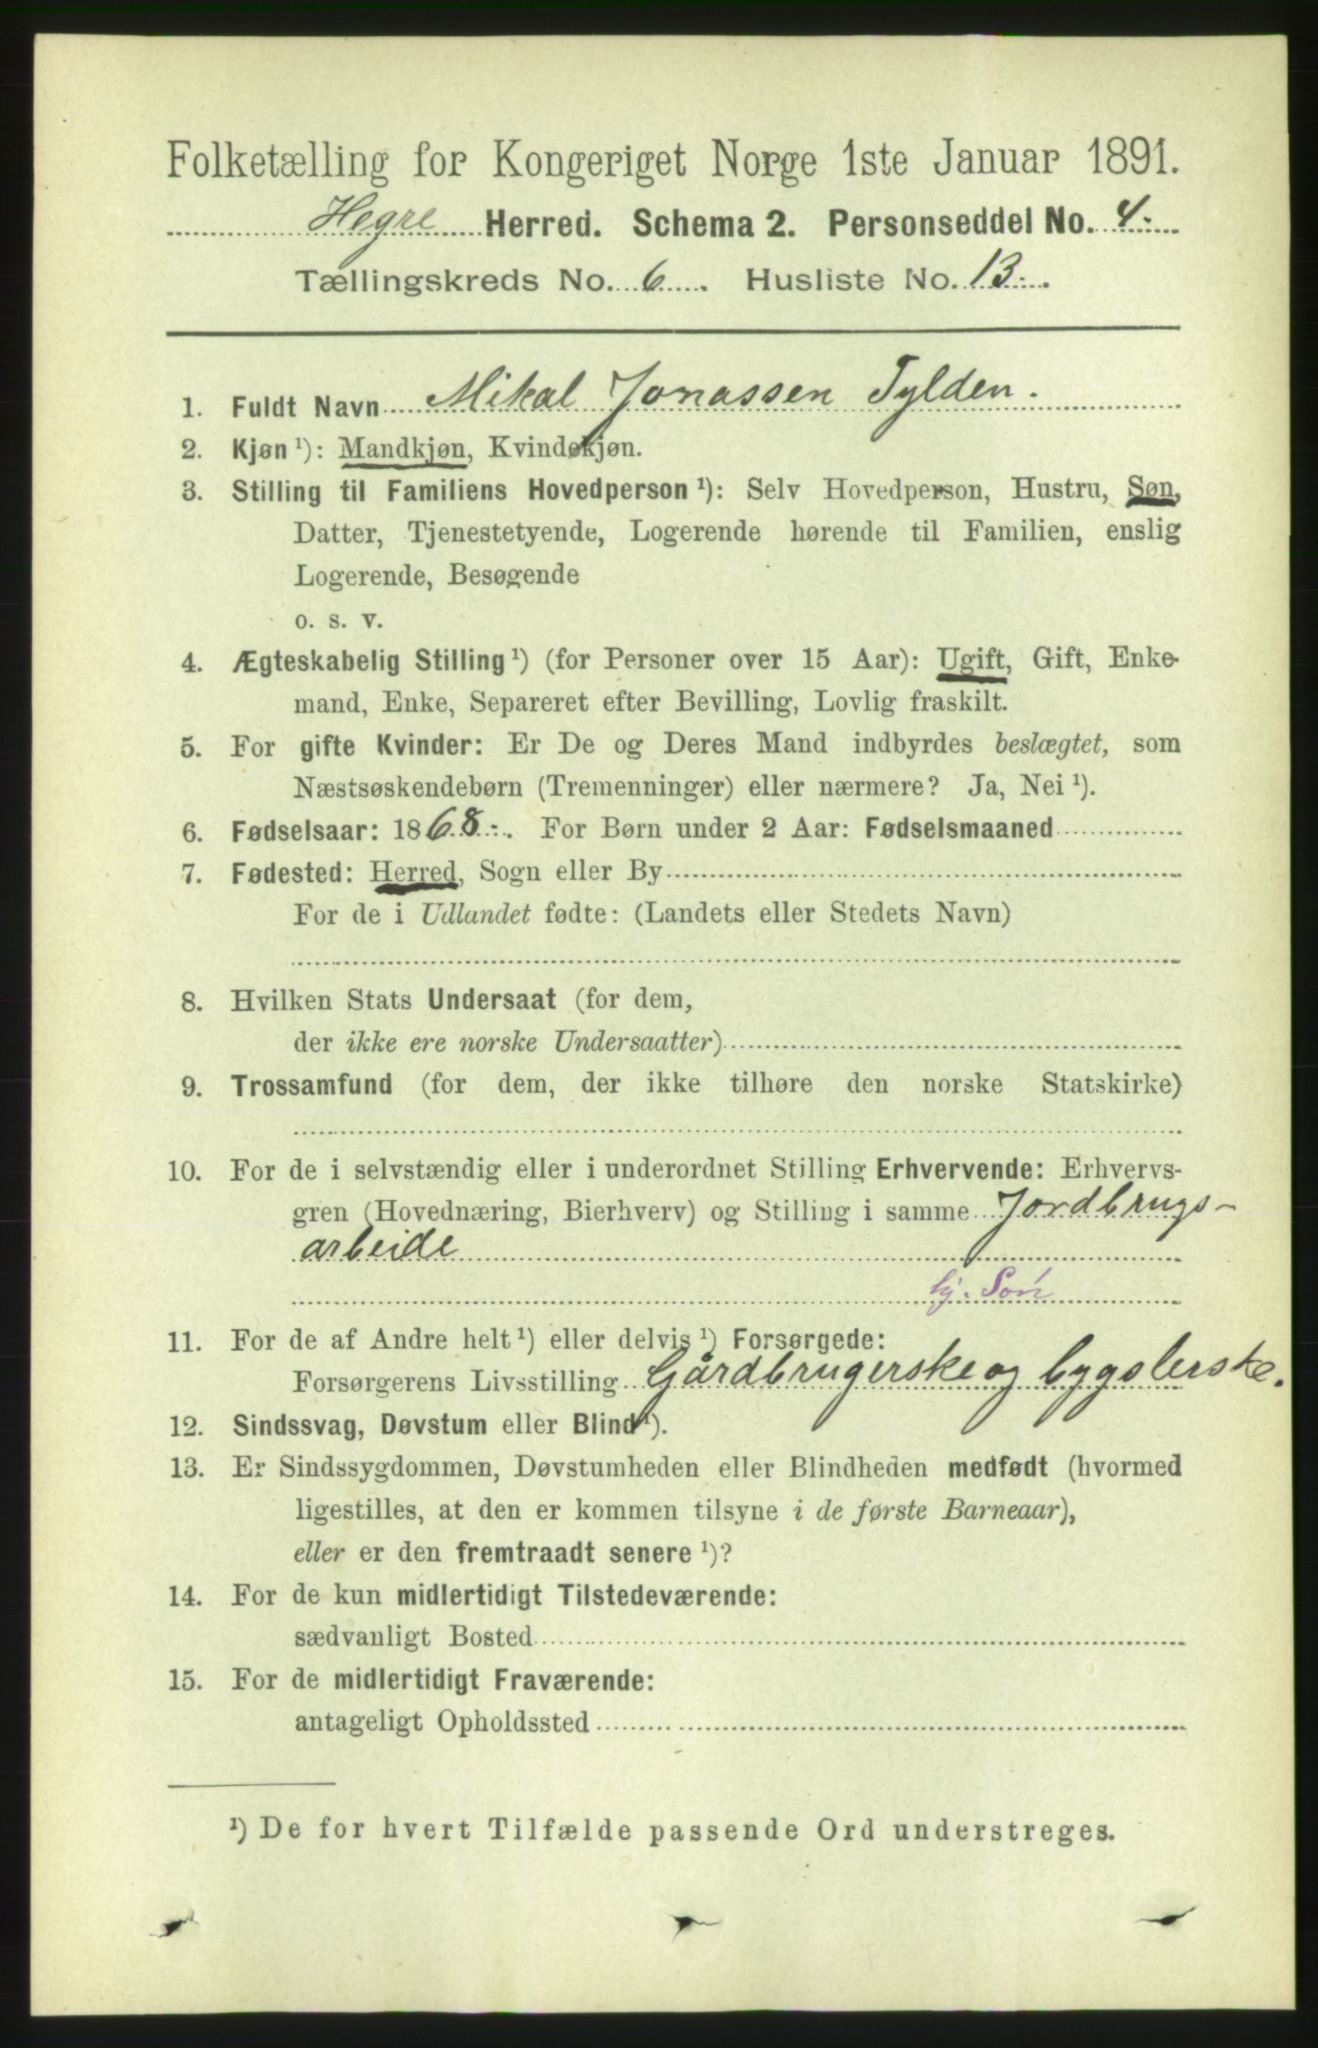 Folketælling for Kongeriget Norge 1ste Januar 1891.
Hegre Herred. Schema 2. Personseddel No. 4.
Tællingskreds No. 6. Husliste No. 13.
1. Fuldt Navn Mikal Jonassen Tylden.
2. Kjøn ¹): Mandkjøn, Kvindekjøn.
3. Stilling til Familiens Hovedperson ¹): Selv Hovedperson, Hustru, Søn,
Datter, Tjenestetyende, Logerende hørende til Familien, enslig
Logerende, Besøgende
o. s. v.
4. Ægteskabelig Stilling ¹) (for Personer over 15 Aar): Ugift, Gift, Enke-
mand, Enke, Separeret efter Bevilling, Lovlig fraskilt.
5. For gifte Kvinder: Er De og Deres Mand indbyrdes beslægtet, som
Næstsøskendebørn (Tremenninger) eller nærmere? Ja, Nei ¹).
6. Fødselsaar: 1868. For Børn under 2 Aar: Fødselsmaaned
7. Fødested: Herred, Sogn eller By
For de i Udlandet fødte: (Landets eller Stedets Navn)
8. Hvilken Stats Undersaat (for dem,
der ikke ere norske Undersaatter)
9. Trossamfund (for dem, der ikke tilhøre den norske Statskirke)
10. For de i selvstændig eller i underordnet Stilling Erhvervende: Erhvervs-
gren (Hovednæring, Bierhverv) og Stilling i samme Jordbrugs-
arbeide
hj. Søn
11. For de af Andre helt ¹) eller delvis ¹) Forsørgede:
Forsørgerens Livsstilling Gårdbrugerske og bygslerske.
12. Sindssvag, Døvstum eller Blind ¹).
13. Er Sindssygdommen, Døvstumheden eller Blindheden medfødt (hvormed
ligestilles, at den er kommen tilsyne i de første Barneaar),
eller er den fremtraadt senere ¹)?
14. For de kun midlertidigt Tilstedeværende:
sædvanligt Bosted
15. For de midlertidigt Fraværende:
antageligt Opholdssted
¹) De for hvert Tilfælde passende Ord understreges.